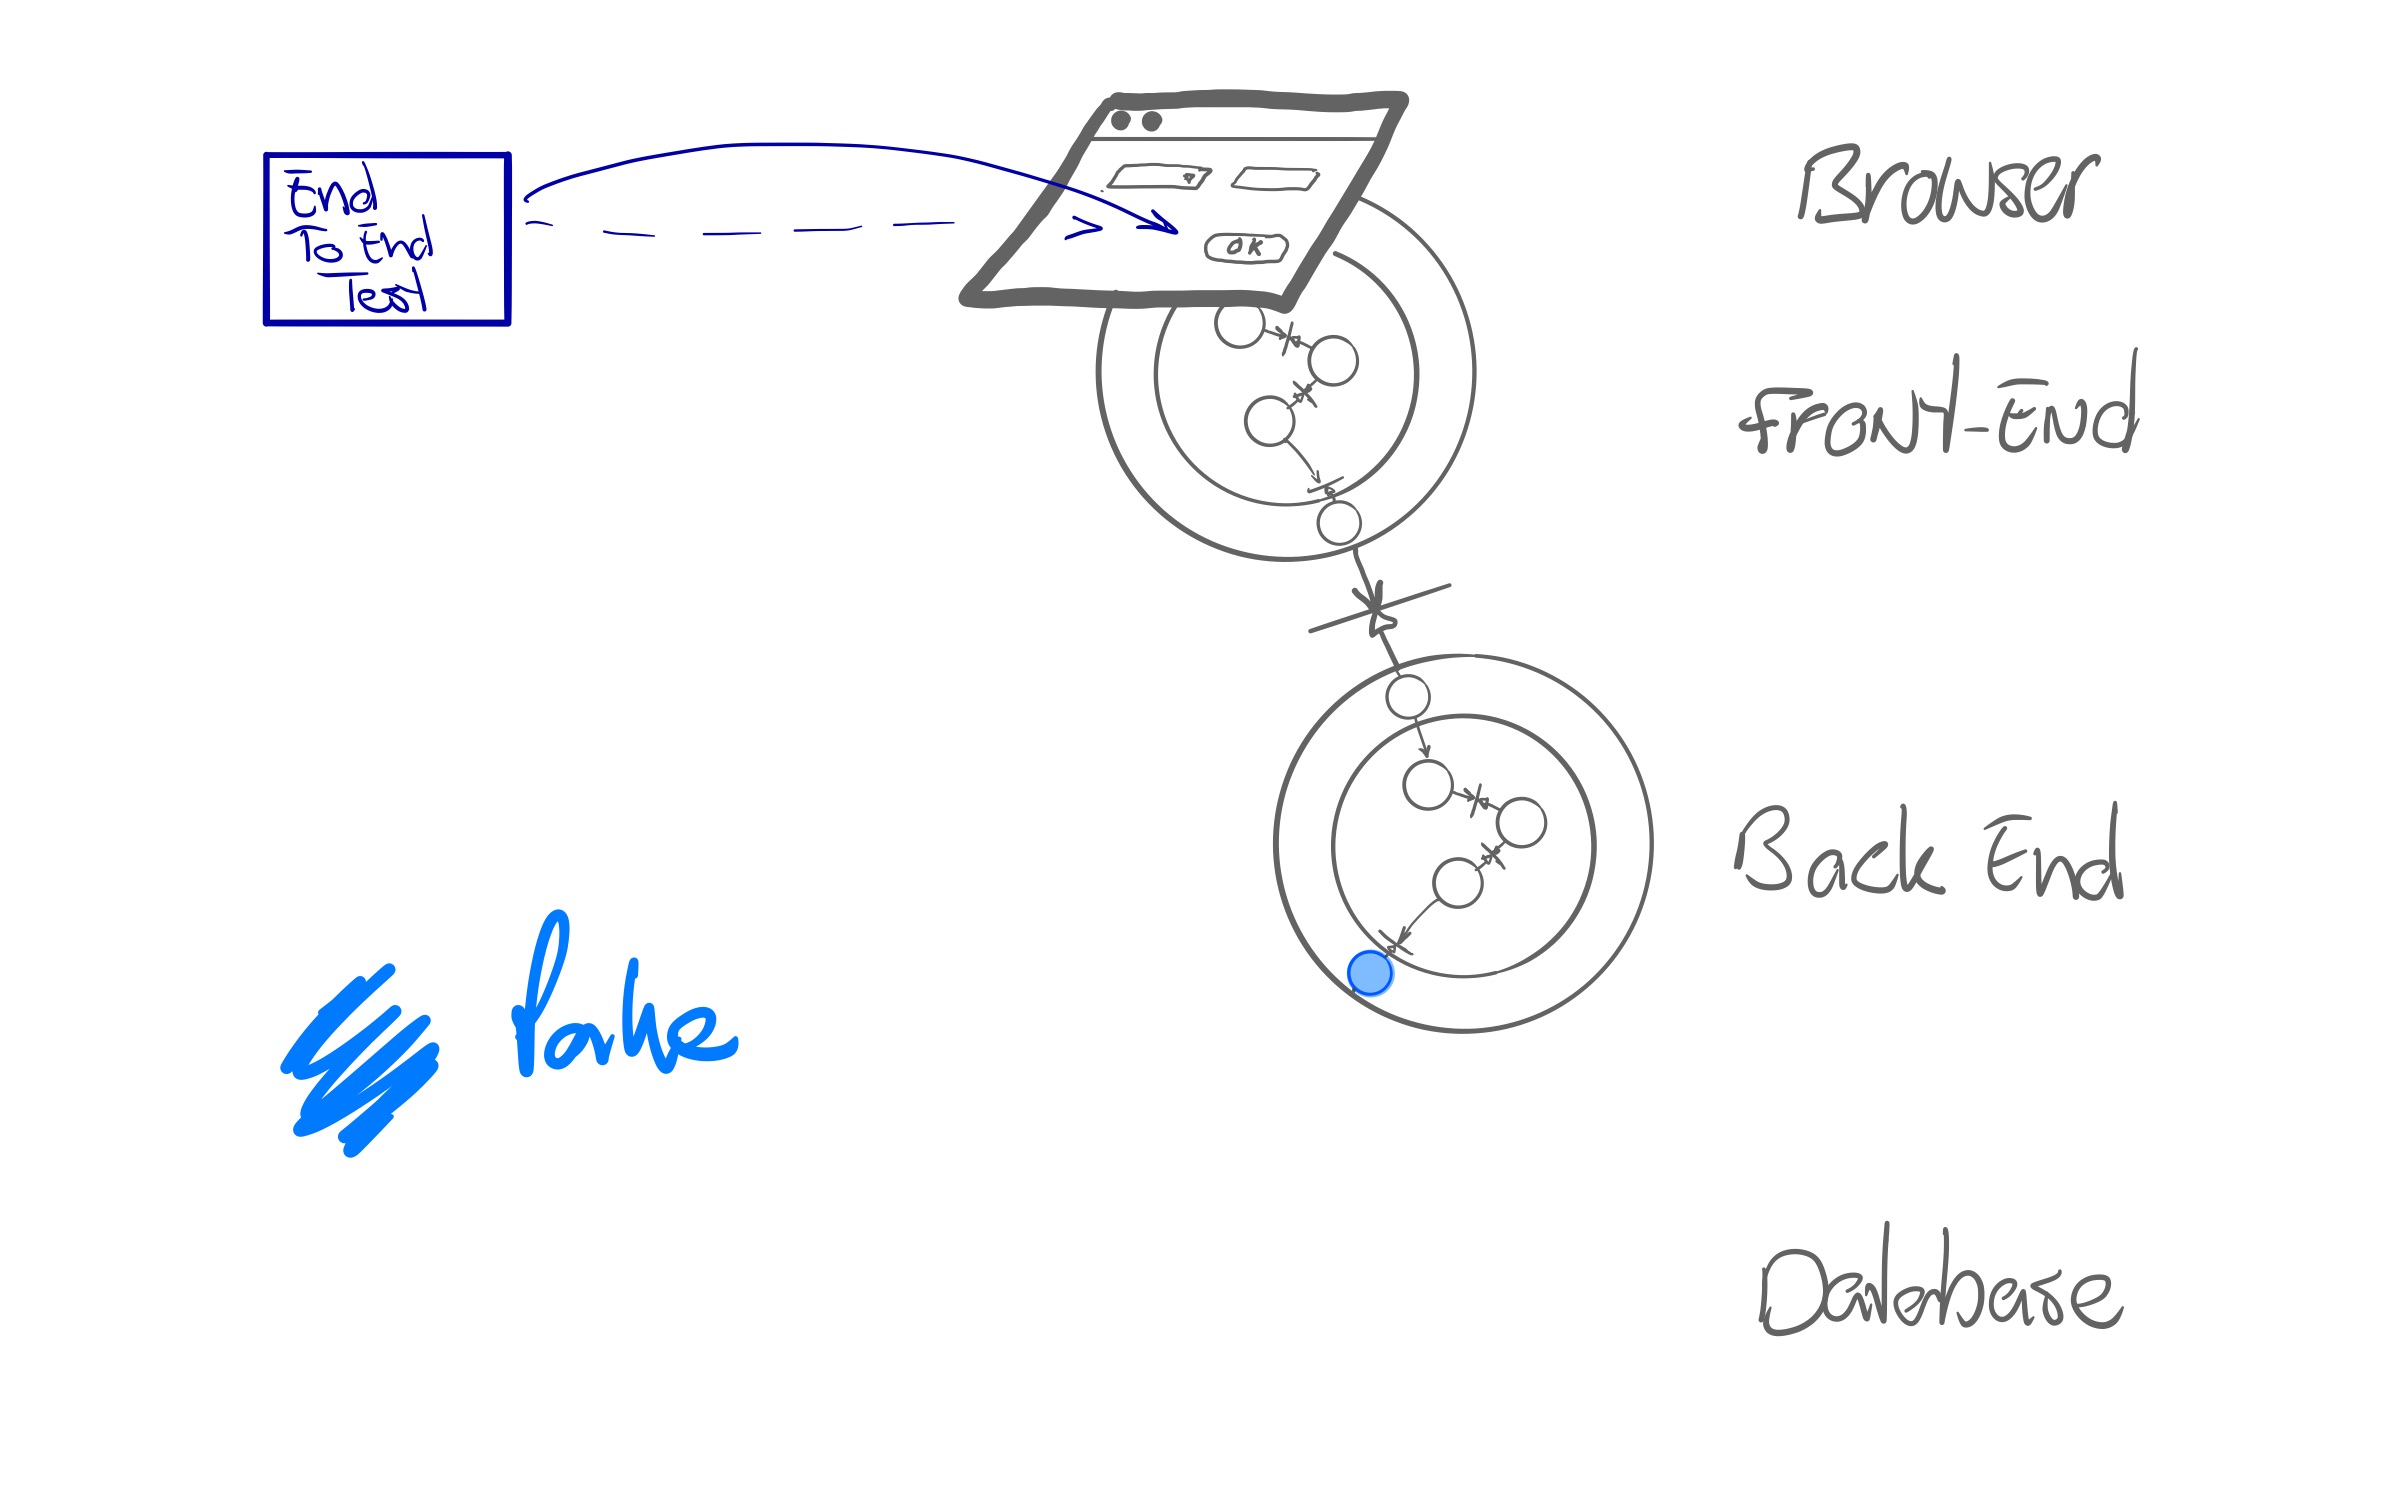 End
To End
Test
OK
Browser
Front-End
Back End
Fake
Database